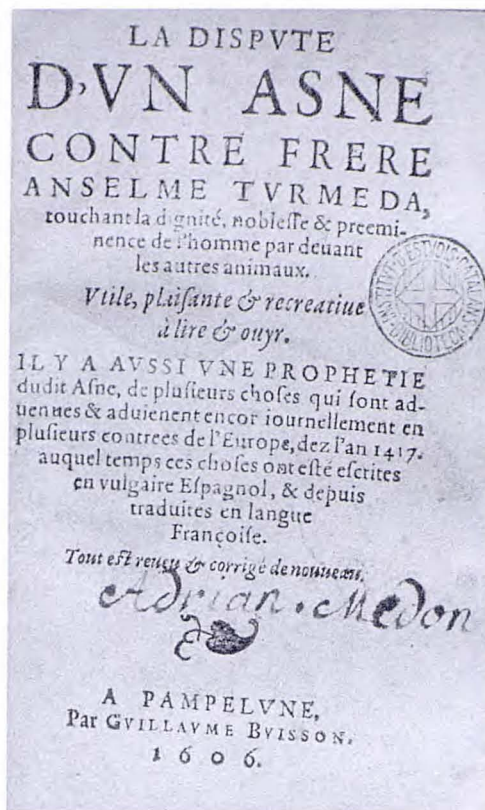 LA DISPVTE
D'VN ASNE
CONTRE FRERE
ANSELME TVRMEDA,
touchant la dignité, noblesſe & preemi-
nence de l'homme par deuant
les autres animaux.
Vtile, plaiſante & recreatiue
à lire & ouyr.
IL Y A AVSSI VNE PROPHETIE
dudit Aſne, de pluſieurs choſes qui ſont ad-
uenues & aduienent encor iournellement en
pluſieurs contrees de l'Europe, dez l'an 1417.
auquel temps ces choſes ont eſté eſcrites
en vulgaire Eſpagnol, & depuis
traduites en langue
Françoiſe.
Tout eſt reueu & corrigé de nouueau.
Adrian. Medon
A PAMPELVNE,
Par GVILLAVME BVISSON.
1606.
INSTITVT D'ESTVDIS CATALANS
BIBLIOTECA